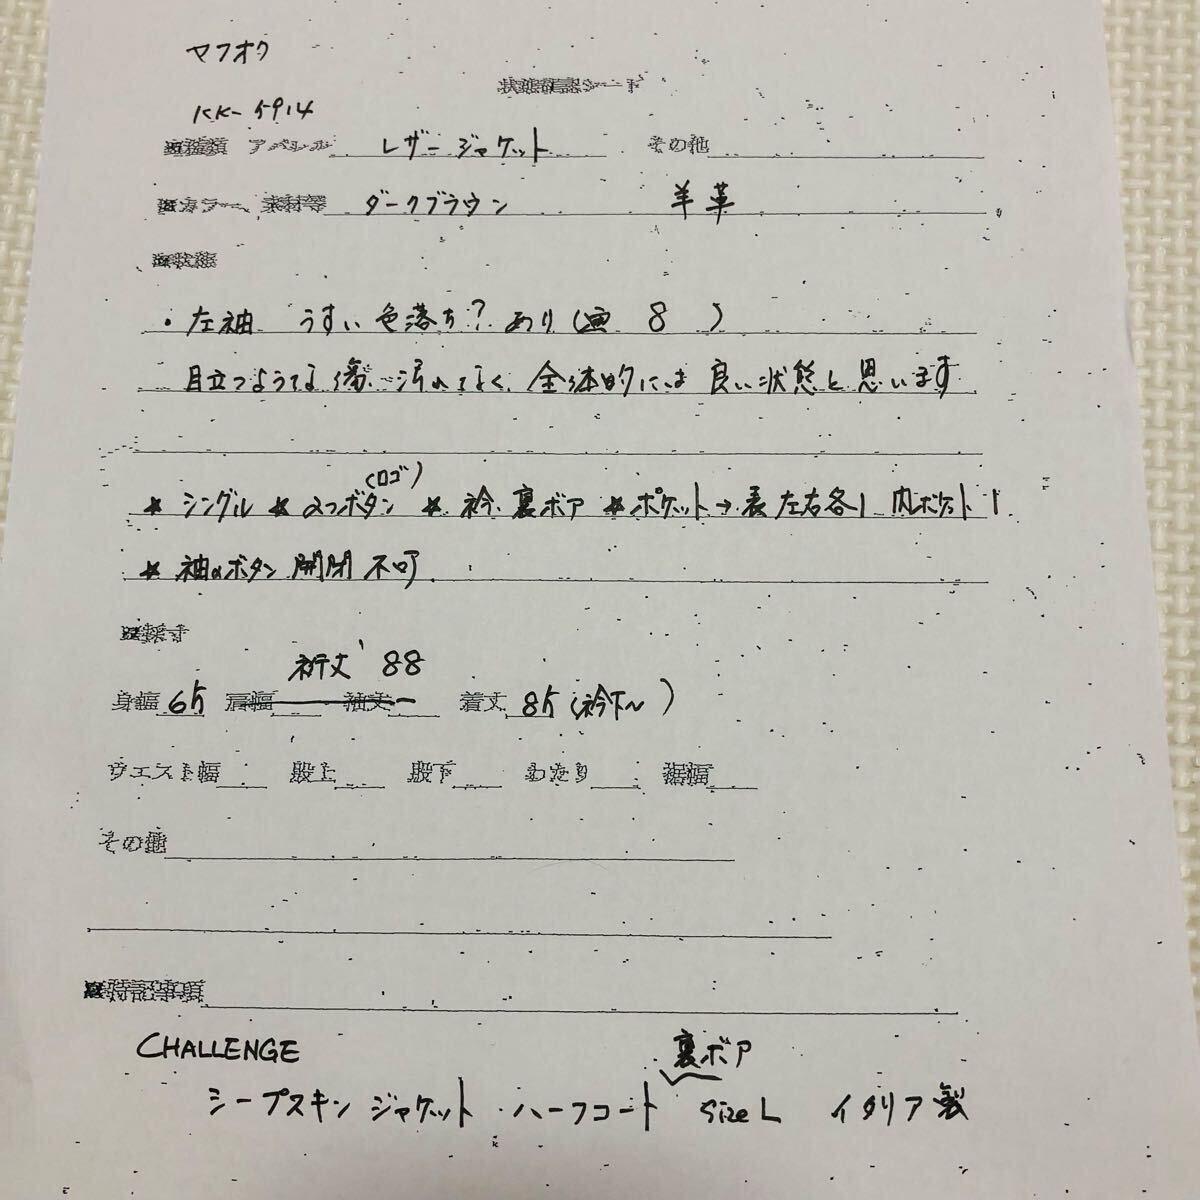 ヤフオク
状態確認シート
KK-5914
※種類 アパレル レザージャケット その他
※カラー、素材等 ダークブラウン 羊革
※状態
・左袖 うすい色落ち?あり(画 8 )
目立つような傷、汚れなく、全体的には良い状態と思います
(ロゴ)
★シングル ★2つボタン ★衿、裏ボア ★ポケット→表左右各1 内ポケット1
★袖のボタン開閉不可
※採寸
裄丈 88
身幅 65 肩幅 袖丈 着丈 85(衿下〜)
ウエスト幅 股上 股下 わたり 裾幅
その他
※特記事項
CHALLENGE
裏ボア
シープスキンジャケット・ハーフコート size L イタリア製